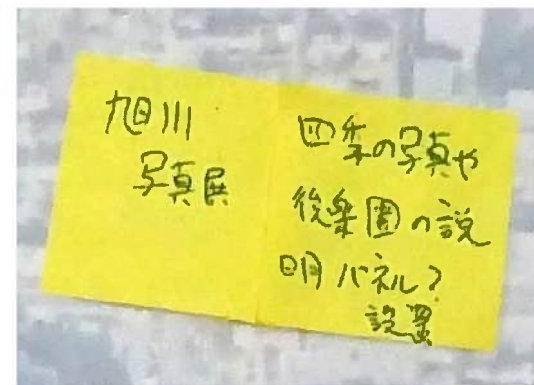 旭川
写真展
四季の写真や
後楽園の説
明パネル?
設置